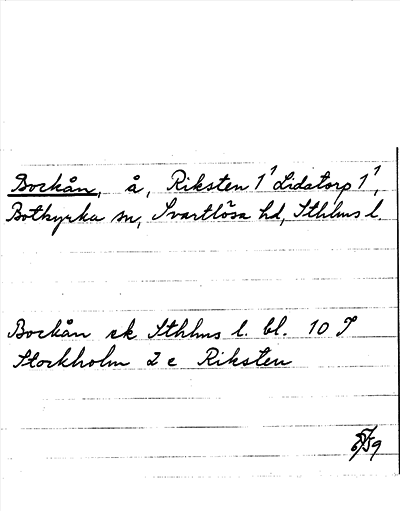 Bockån, å, Riksten 1¹ Lidatorp 1¹,
Botkyrka sn, Svartlösa hd, Sthlms l.
Bockån ek Sthlms l. bl. 10 S
Stockholm 2 c Riksten